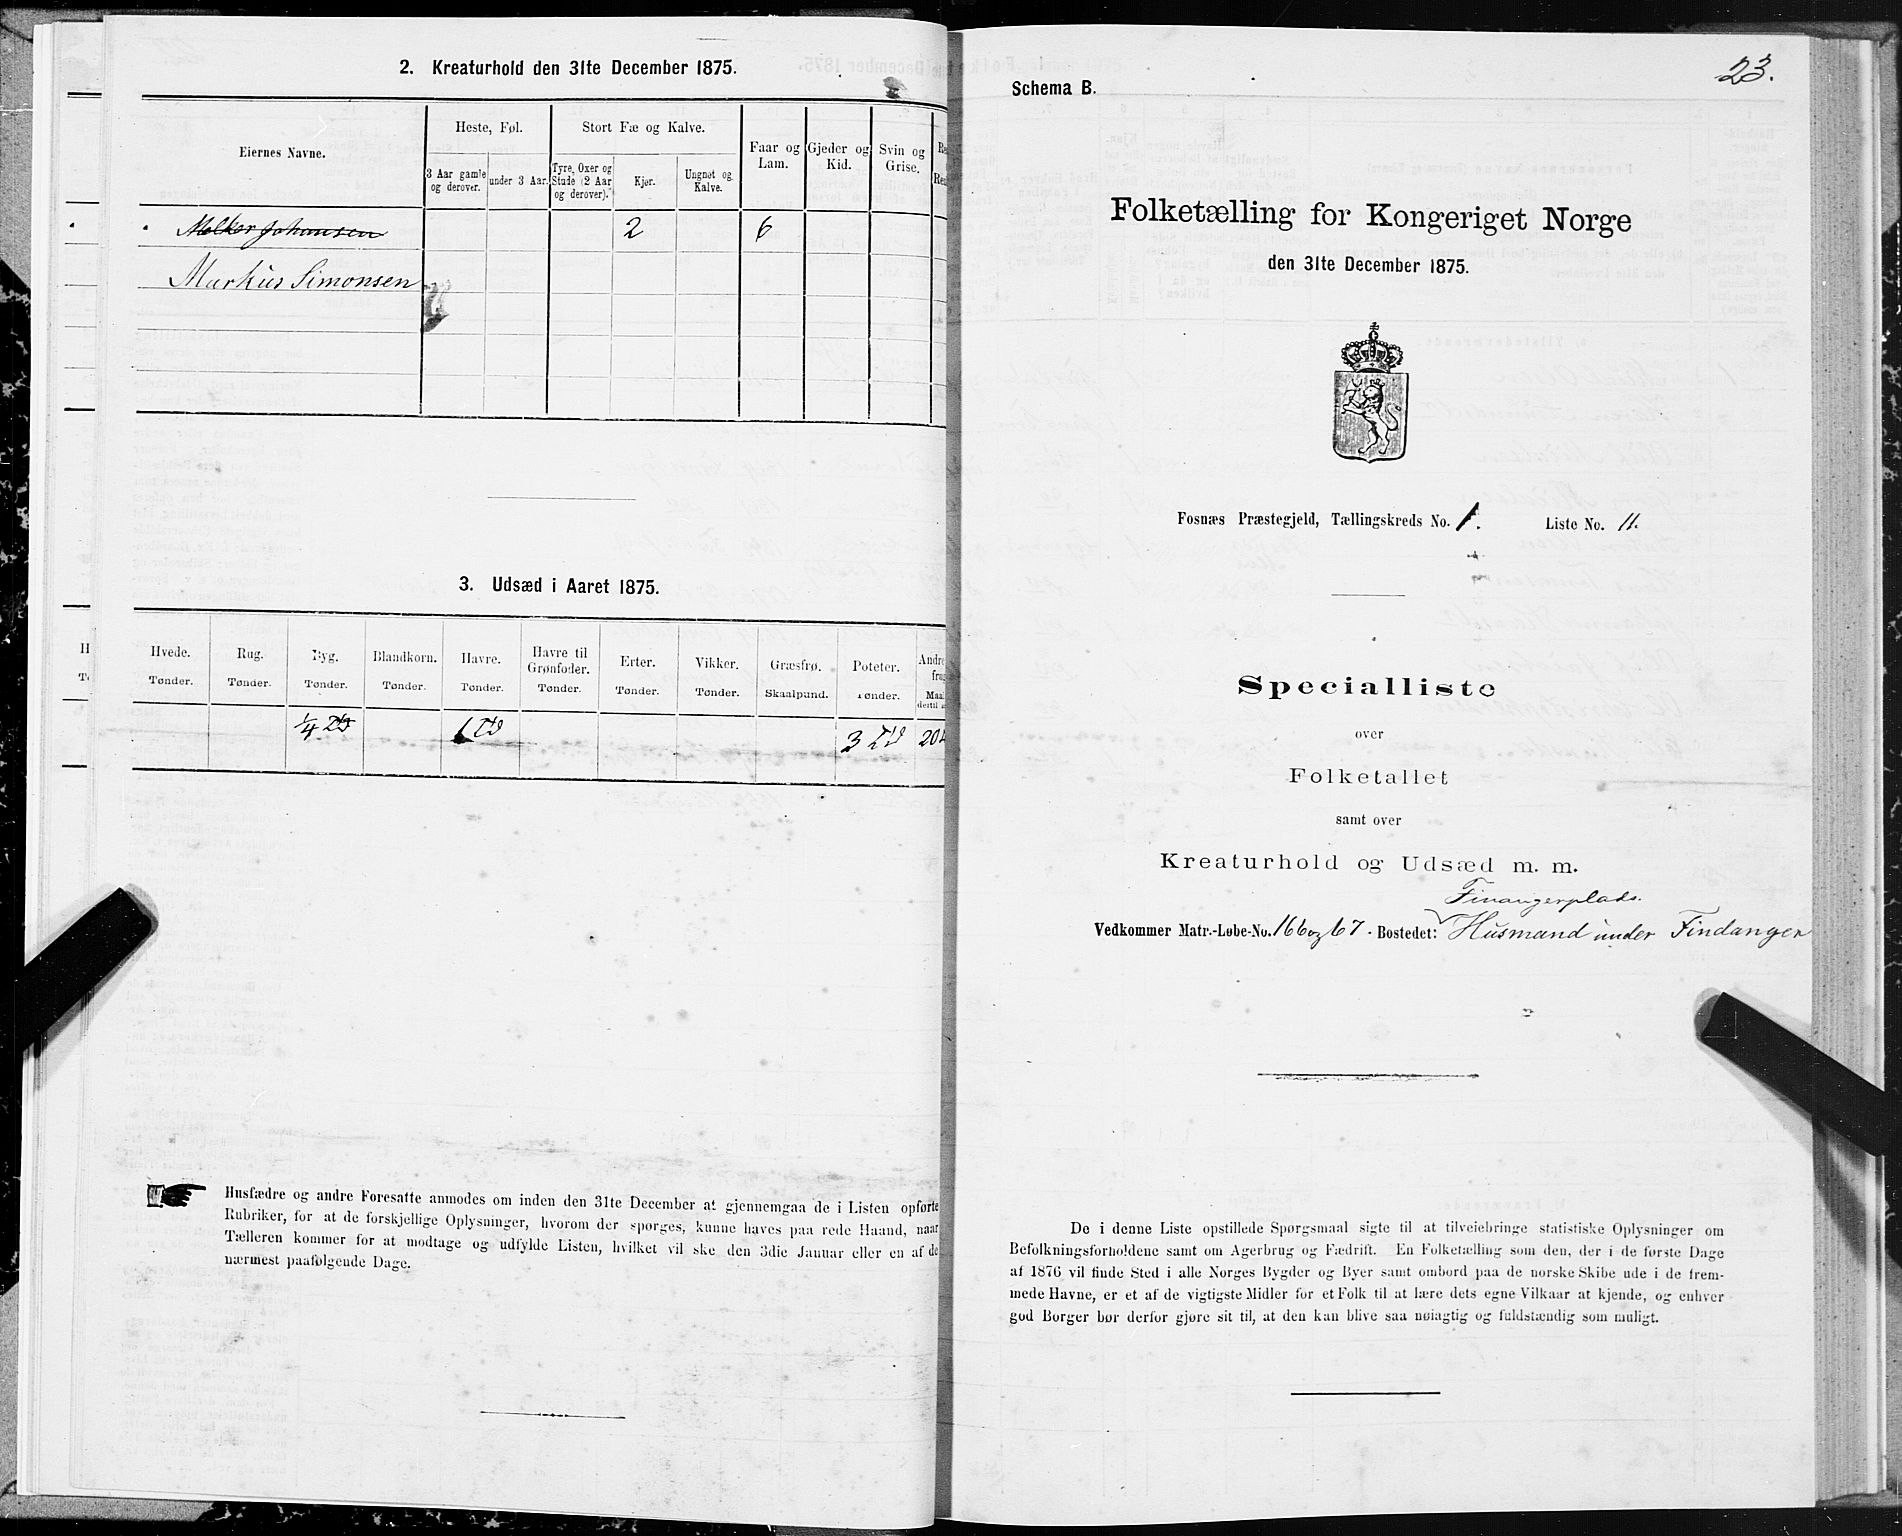 2. Kreaturhold den 31te December 1875.
Eiernes Navne.
Heste, Føl.
Stort Fæ og Kalve.
Faar og Lam.
Gjeder og Kid.
Svin og Grise.
3 Aar gamle og derover.
under 3 Aar.
Tyre, Oxer og Stude (2 Aar og derover).
Kjør.
Ungnøt og Kalve.
Melker Johansen 2 6
Markus Simonsen
3. Udsæd i Aaret 1875.
Hvede. Rug. Byg. Blandkorn. Havre. Havre til Grønfoder. Erter. Vikker. Græsfrø. Poteter. Andre
Tønder. Tønder. Tønder. Tønder. Tønder. Tønder. Tønder. Tønder. Skaalpund. Tønder. Maal
1/4 Td 1 Td 3 Td 20
Husfædre og andre Foresatte anmodes om inden den 31te December at gjennemgaa de i Listen opførte
Rubriker, for at de forskjellige Oplysninger, hvorom der spørges, kunne haves paa rede Haand, naar
Tælleren kommer for at modtage og udfylde Listen, hvilket vil ske den 3die Januar eller en af de
nærmest paafølgende Dage.
23.
Schema B.
Folketælling for Kongeriget Norge
den 31te December 1875.
Fosnæs Præstegjeld, Tællingskreds No. 1. Liste No. 11.
Specialliste
over
Folketallet
samt over
Kreaturhold og Udsæd m. m.
Finangerplads.
Vedkommer Matr.-Løbe-No. 166 og 67. Bostedet: Husmand under Findanger
De i denne Liste opstillede Spørgsmaal sigte til at tilveiebringe statistiske Oplysninger om
Befolkningsforholdene samt om Agerbrug og Fædrift. En Folketælling som den, der i de første Dage
af 1876 vil finde Sted i alle Norges Bygder og Byer samt ombord paa de norske Skibe ude i de frem-
mede Havne, er et af de vigtigste Midler for et Folk til at lære dets egne Vilkaar at kjende, og enhver
god Borger bør derfor gjøre sit til, at den kan blive saa nøiagtig og fuldstændig som muligt.